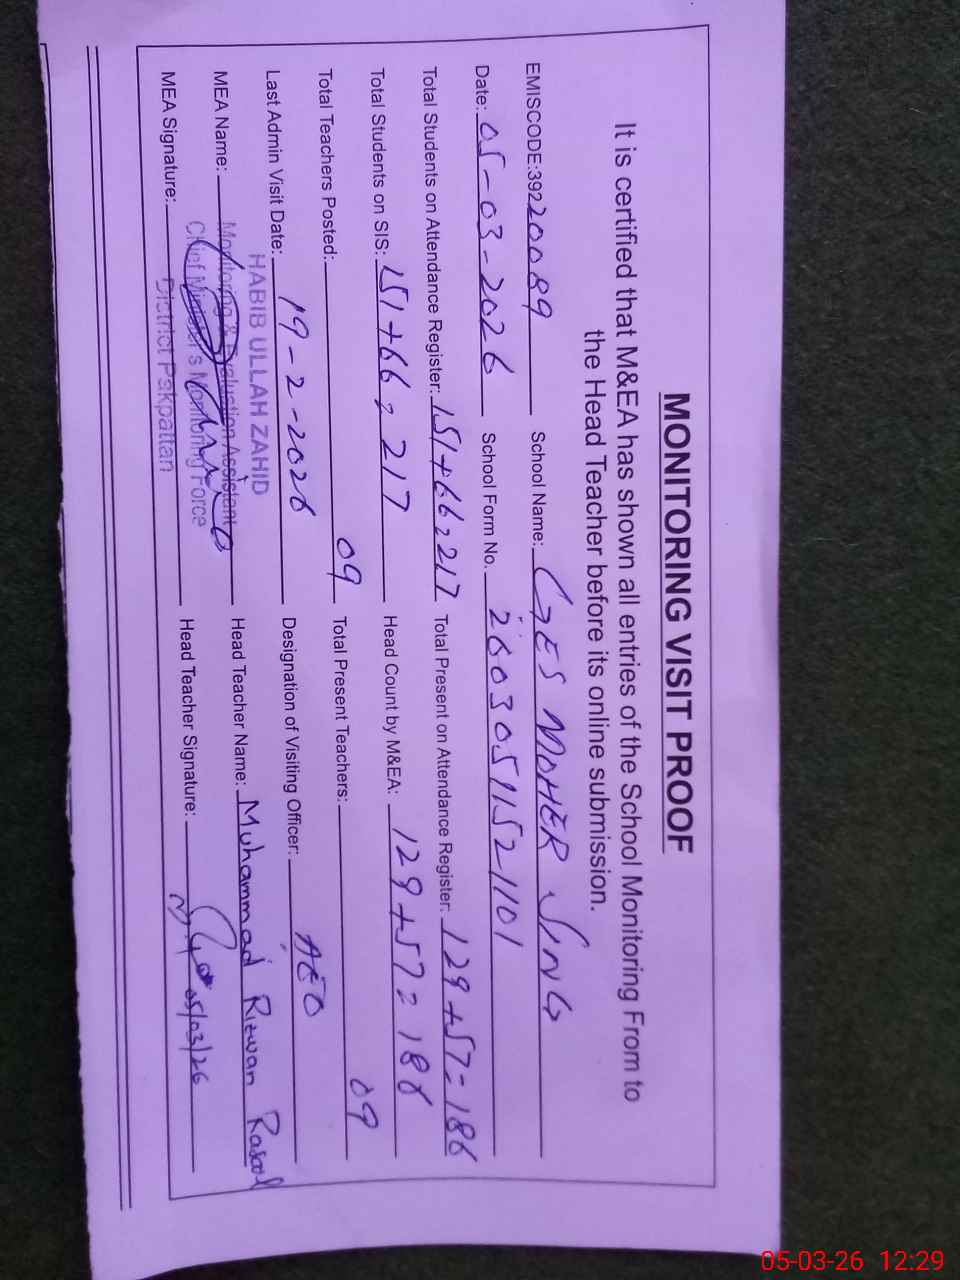 MONITORING VISIT PROOF
It is certified that M&EA has shown all entries of the School Monitoring From to
the Head Teacher before its online submission.
EMISCODE:39220089 School Name: GES MOHER SING
Date: 05-03-2026 School Form No. 26030511521101
Total Students on Attendance Register: 151+66=217 Total Present on Attendance Register: 129+57=186
Total Students on SIS: 151+66=217 Head Count by M&EA: 129+57=186
Total Teachers Posted: 09 Total Present Teachers: 09
Last Admin Visit Date: 19-2-2026 Designation of Visiting Officer: AEO
HABIB ULLAH ZAHID
MEA Name: Monitoring & Evaluation Assistant Head Teacher Name: Muhammad Rizwan Rasool
Chief Minister's Monitoring Force
MEA Signature: District Pakpattan Head Teacher Signature: 05/03/26
05-03-26 12:29